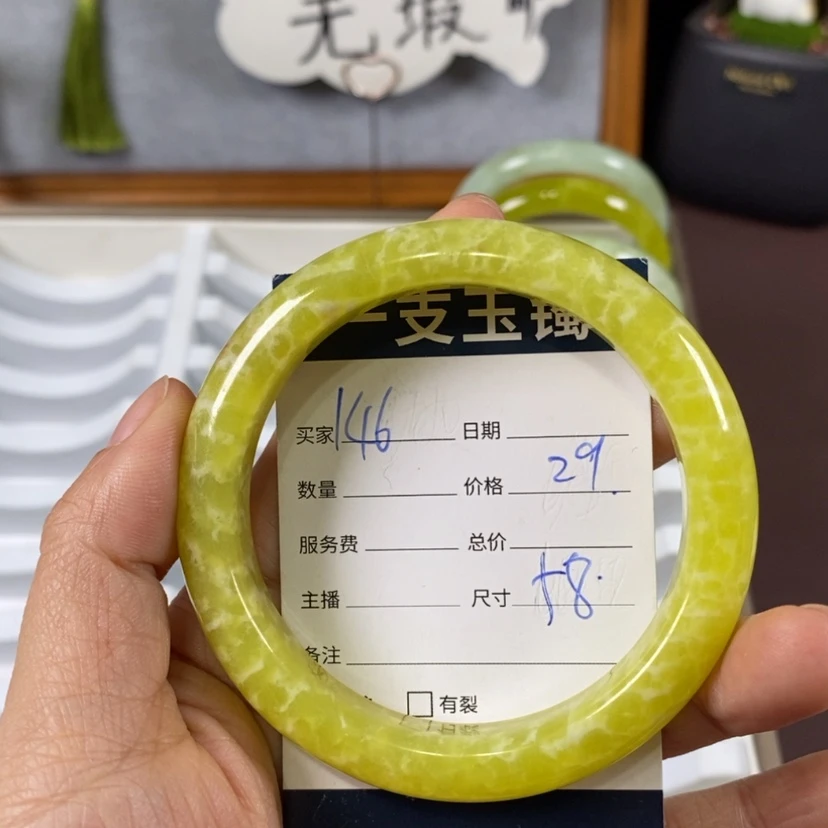 无瑕
一支玉镯
买家 146 日期
数量 价格 29.
服务费 总价
主播 尺寸 58.
备注
有裂